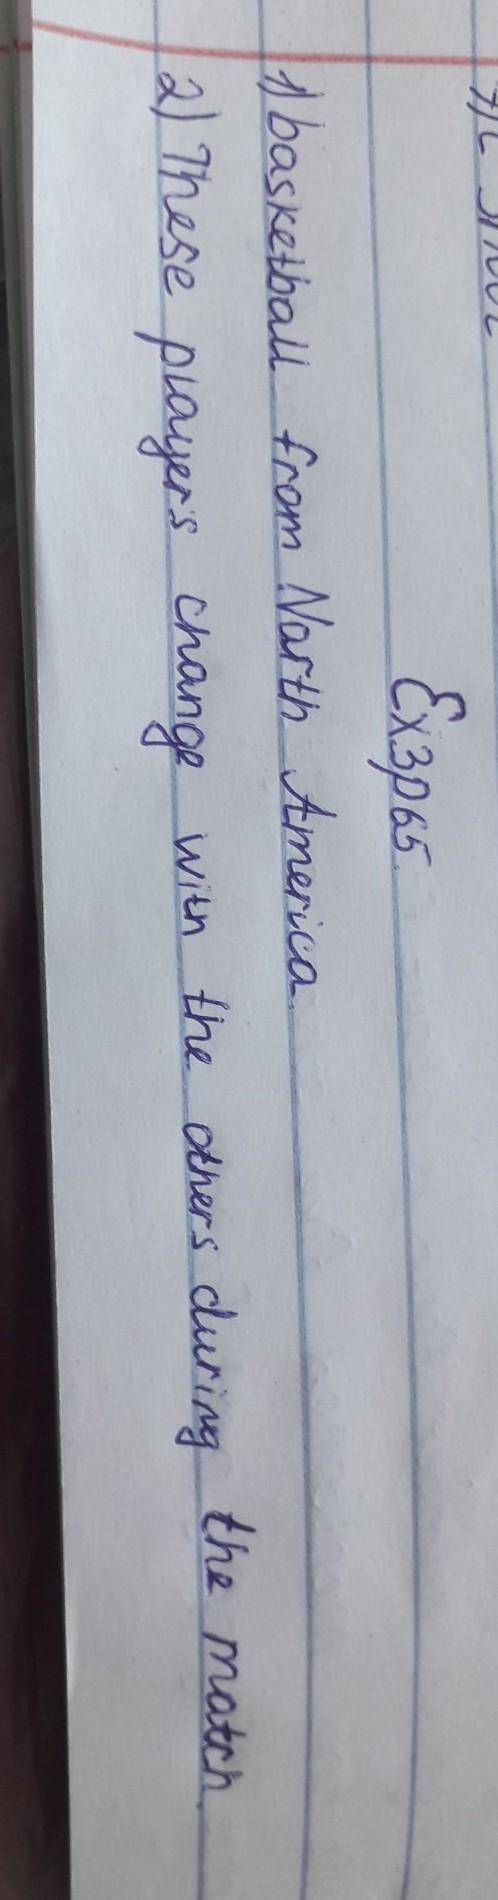 Ex3p65.
1) basketball from North America.
2) These players change with the others during the match.